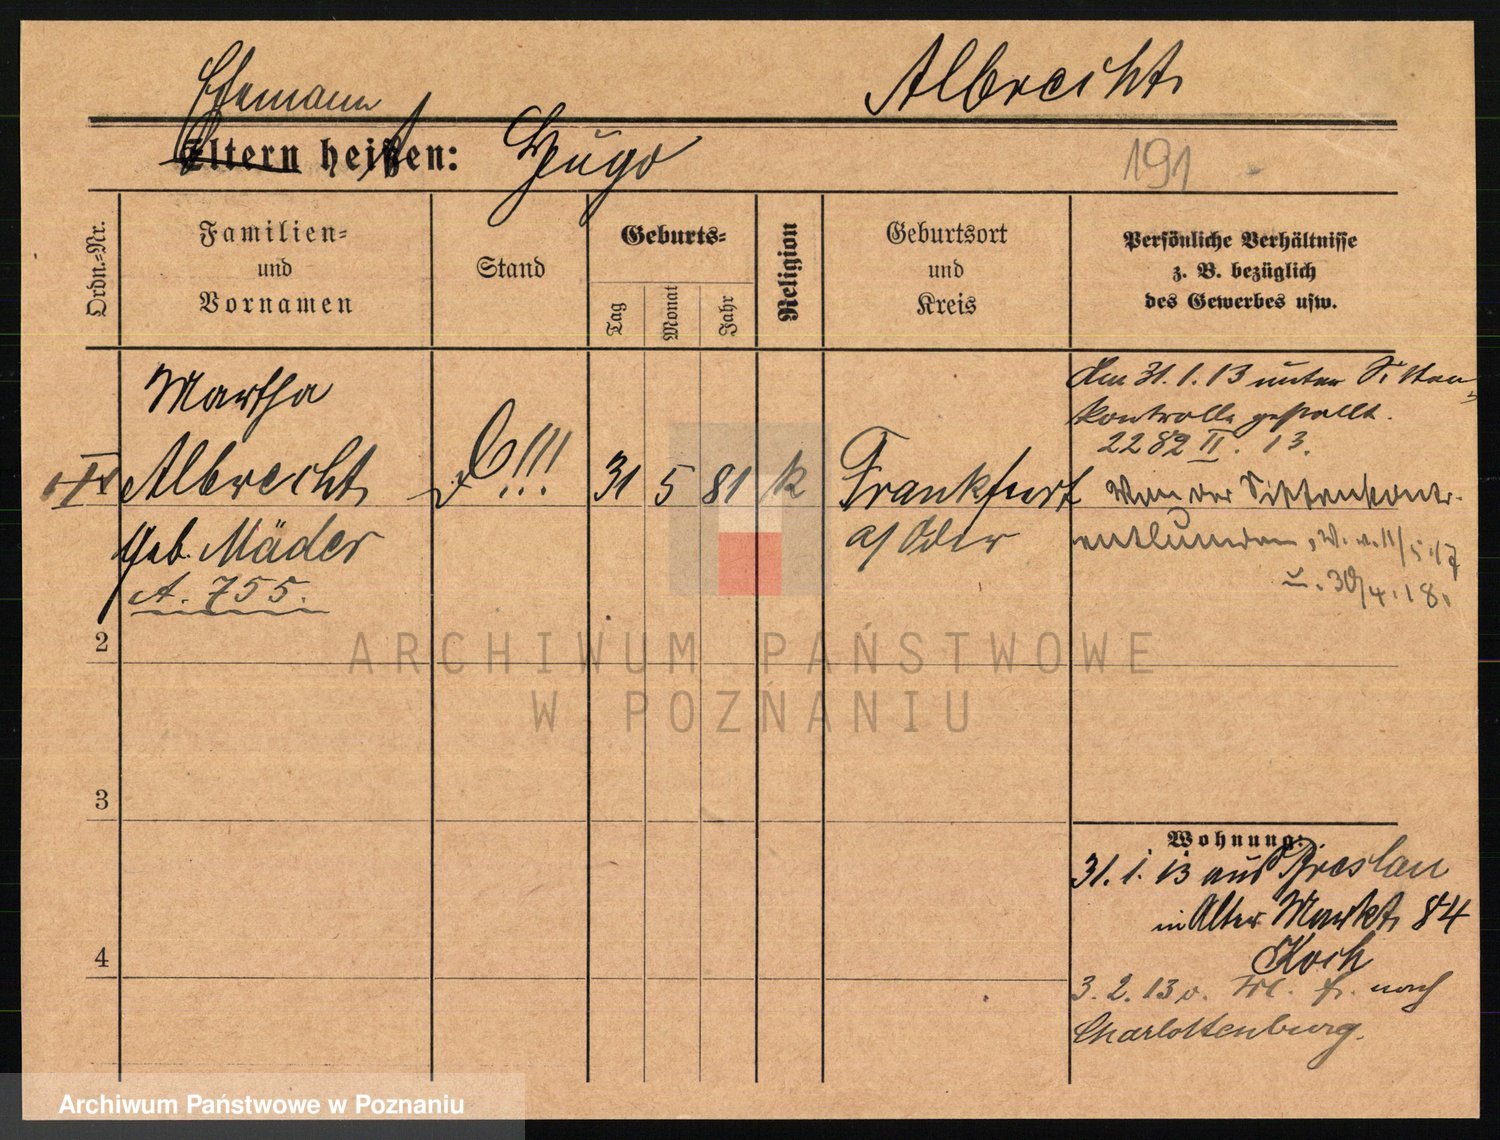 Albrecht
Ehemann
Eltern heißen: Hugo
191
Ordn.-Nr.
Familien=
und
Vornamen
Stand
Geburts=
Tag
Monat
Jahr
Religion
Geburtsort
und
Kreis
Persönliche Verhältnisse
z. B. bezüglich
des Gewerbes usw.
Martha
Albrecht
geb. Mäder
A. 755.
!!!
31 5 81 k
Frankfurt
a/Oder
Am 31.1.13 unter Sitten=
kontrolle gestellt.
2282 II. 13.
Von der Sittenkontr.
entbunden, 11/5.17
u. 30/4.18.
2
3
4
Wohnung:
31.1.13 aus Breslau
in Alter Markt 84
Koch
3.2.13 nach
Charlottenburg.
ARCHIWUM PAŃSTWOWE
W POZNANIU
Archiwum Państwowe w Poznaniu